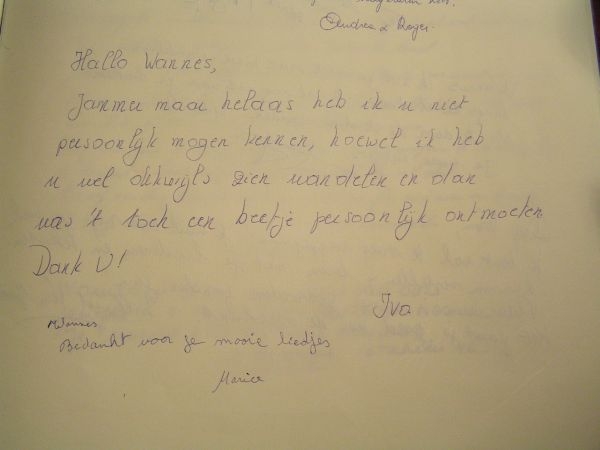 Andrea & Roger.
Hallo Wannes,
Jammer maar helaas heb ik u niet
persoonlijk mogen kennen, hoewel ik heb
u wel dikwijls zien wandelen en dan
was 't toch een beetje persoonlijk ontmoeten
Dank U!
Iva
Wannes
Bedankt voor je mooie liedjes